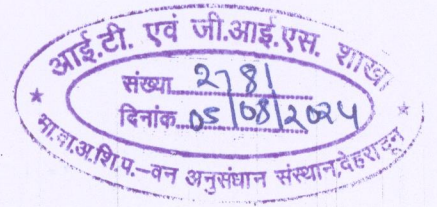 आई.टी. एवं जी.आई.एस. शाखा
संख्या 2781
दिनांक 05/08/2024
* भा.वा.अ.शि.प.–वन अनुसंधान संस्थान,देहरादून *